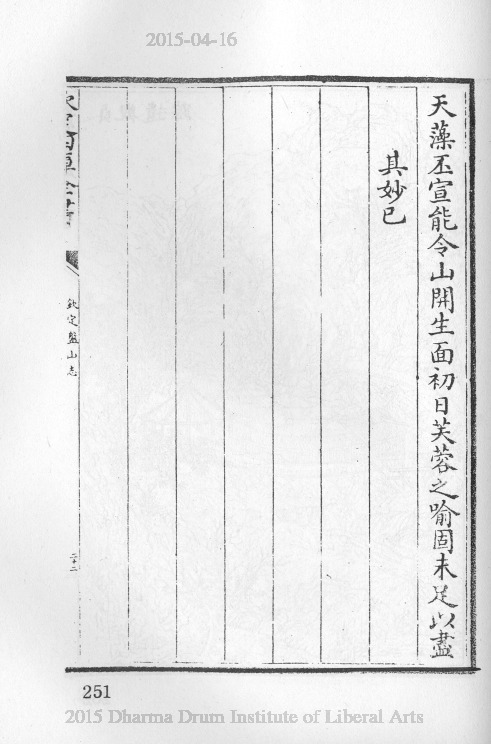 2015-04-16
天藻丕宣能令山開生面初日芙蓉之喻固未足以盡
其妙已
欽定盤山志
二十二
251
2015 Dharma Drum Institute of Liberal Arts